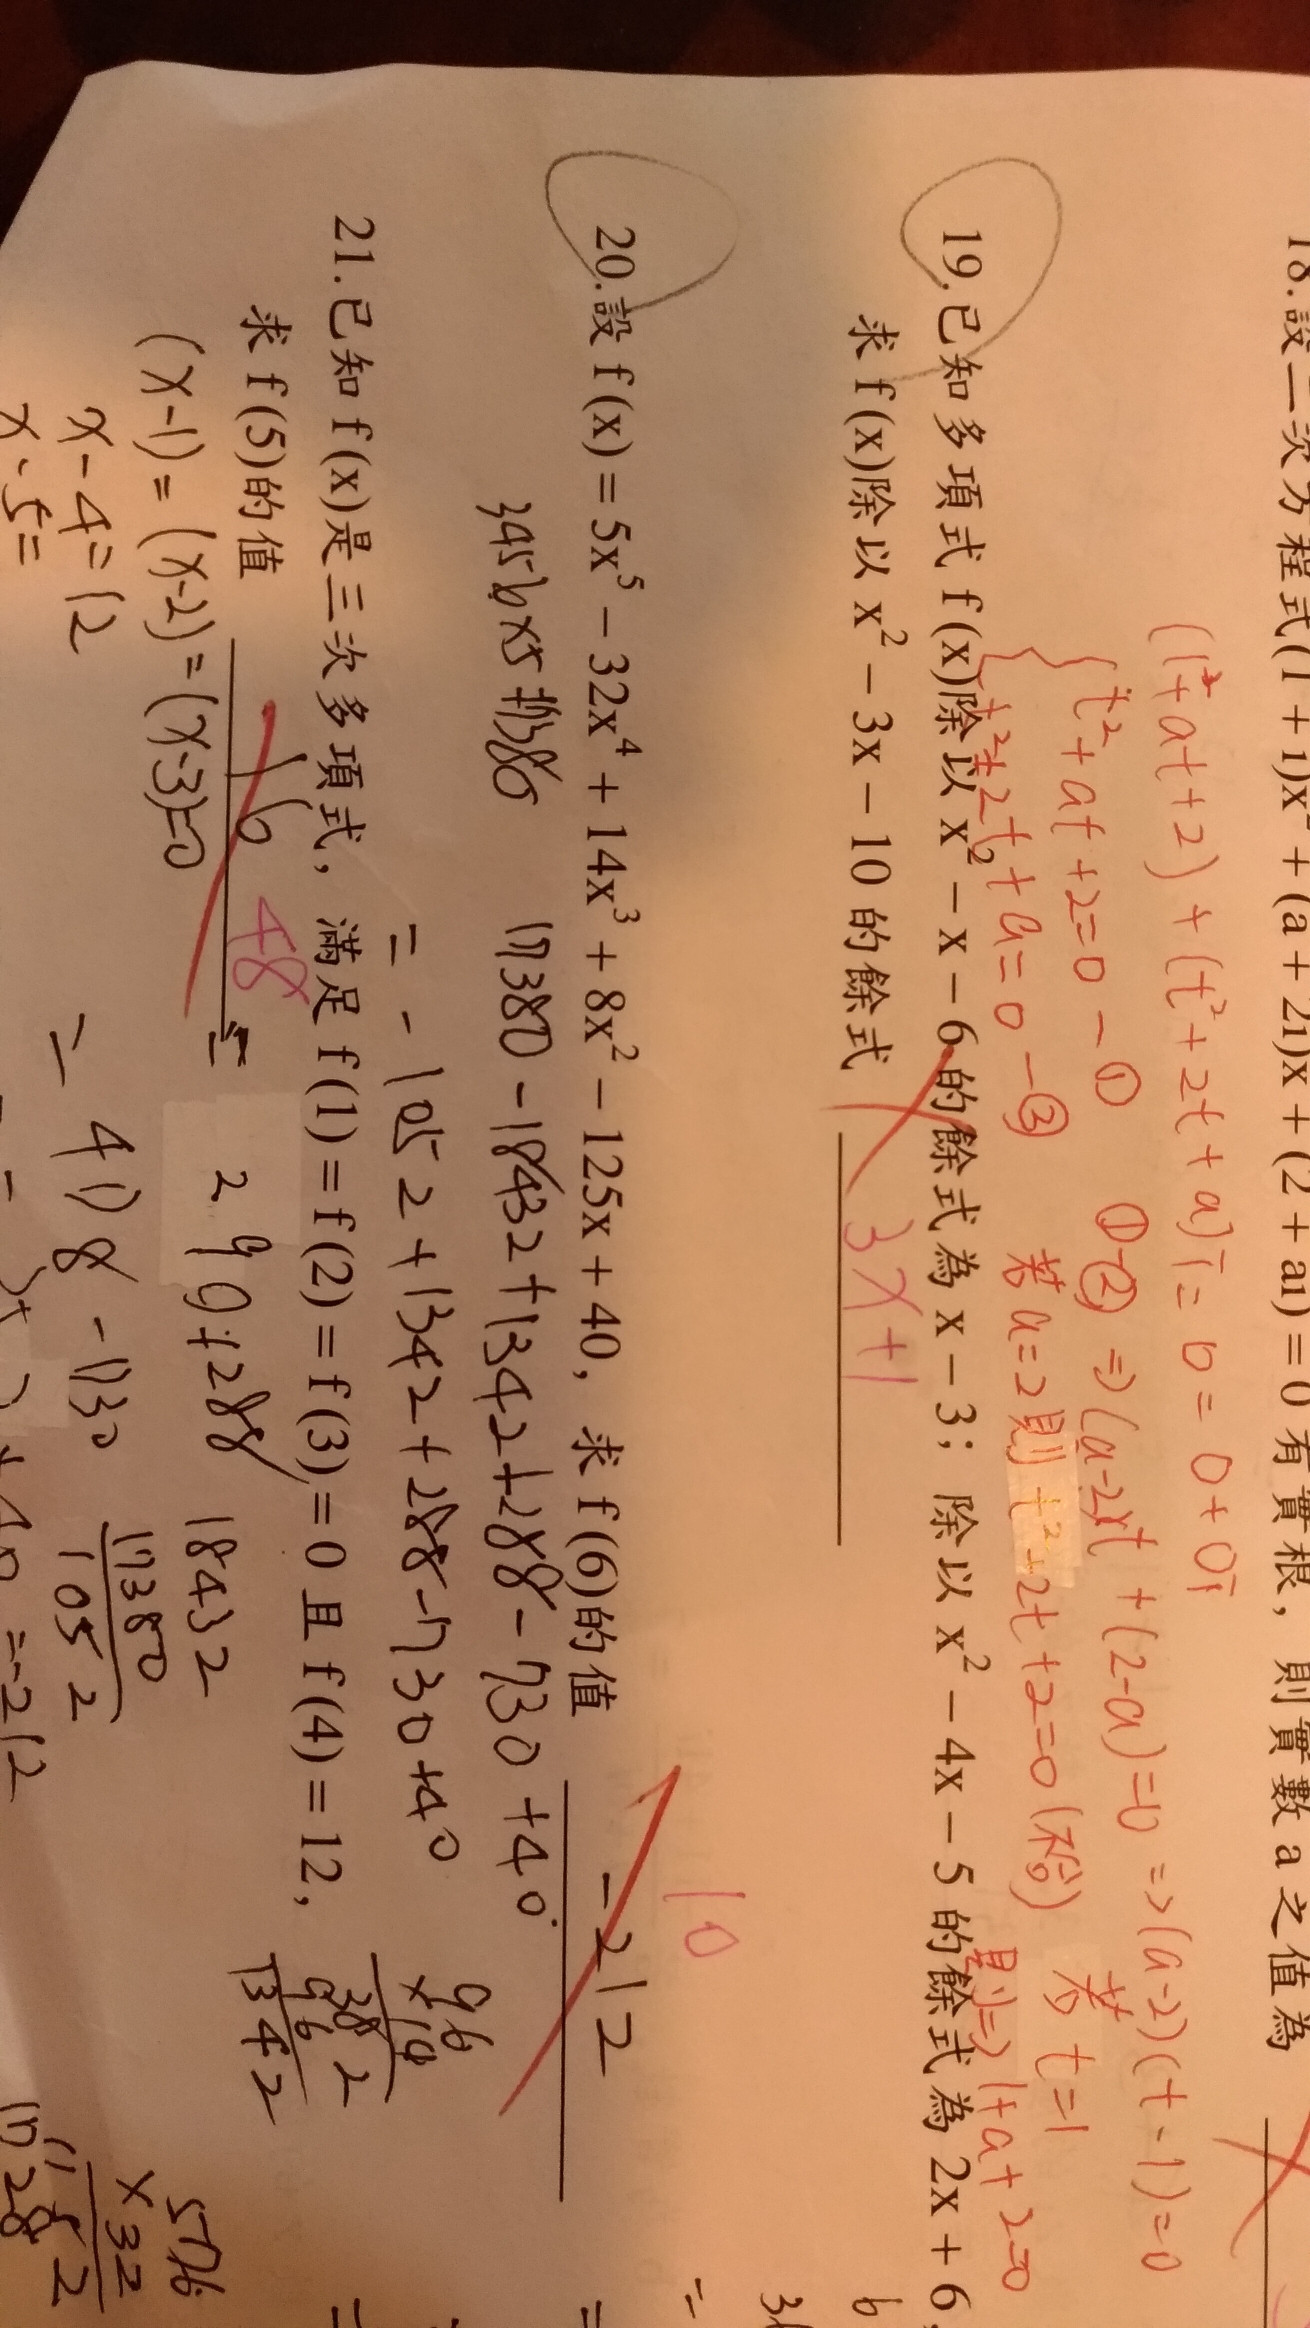 18.設二次方程式(1+i)x²+(a+2i)x+(2+ai)=0 有實根，則實數 a 之值為
(t²+at+2)+(t²+2t+a)i=0=0+0i
{t²+at+2=0-① ①-②⇒(a-2)t+(2-a)=0⇒(a-2)(t-1)=0
{t²+2t+a=0-② 若a=2則t²+2t+2=0(不合) 若t=1
則⇒1+a+2=0
19.已知多項式 f(x)除以 x²-x-6 的餘式為 x-3；除以 x²-4x-5 的餘式為 2x+6，
求 f(x)除以 x²-3x-10 的餘式
3x+1
10
20.設 f(x)=5x⁵-32x⁴+14x³+8x²-125x+40，求 f(6)的值
-212
17380-18432+1342+288-730+40
=-1052+1342+288-730+40
96
382
96
1342
21.已知 f(x)是三次多項式，滿足 f(1)=f(2)=f(3)=0 且 f(4)=12，
求 f(5)的值
16
48
290+288
18432
17380
1052
(x-1)=(x-2)=(x-3)=0
x-4=12
x-5=
=-212
5776
×32